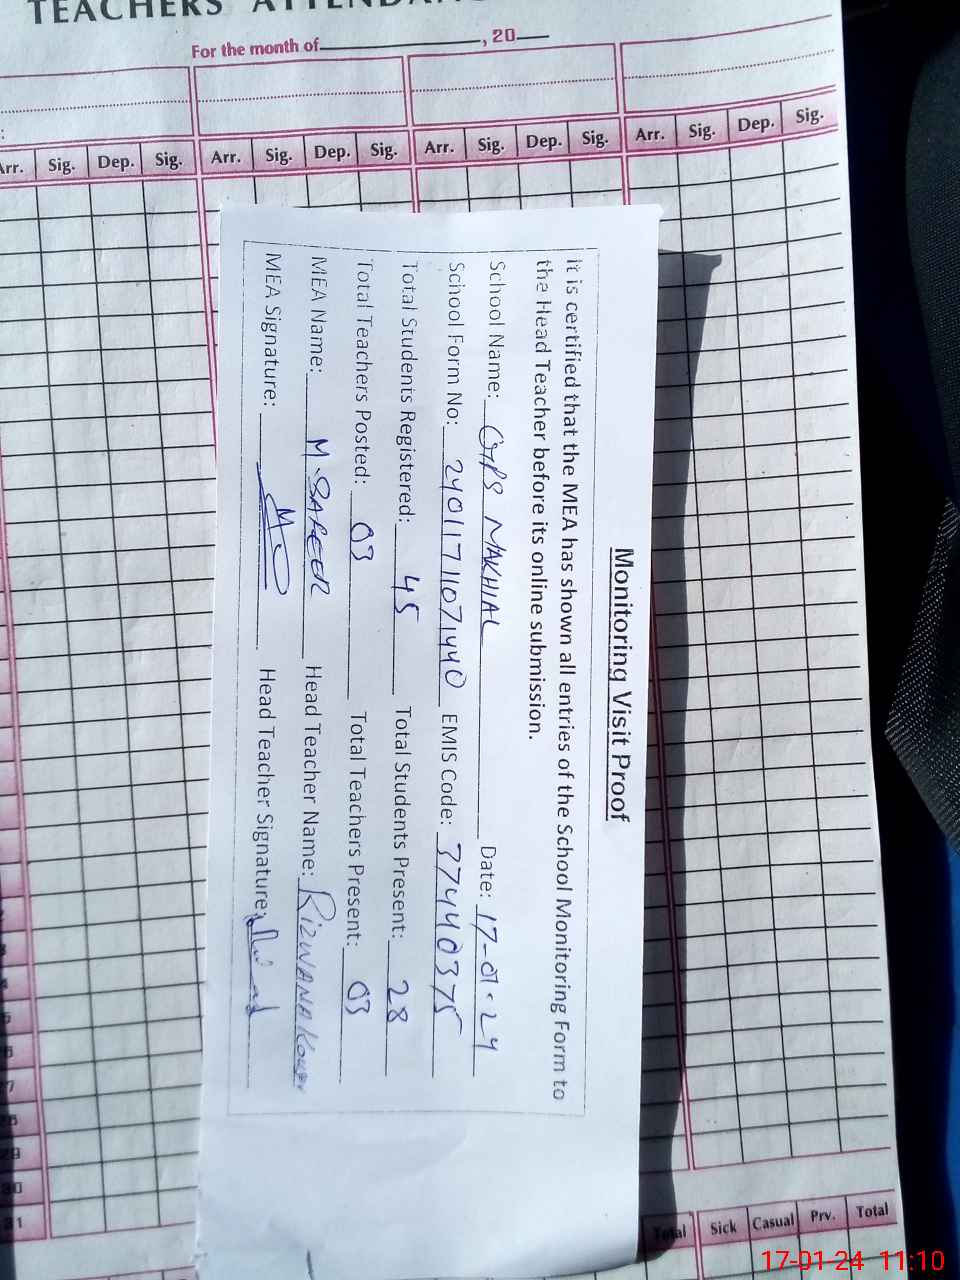 TEACHERS ATTENDAN
For the month of ________ , 20__
Arr. Sig. Dep. Sig. Arr. Sig. Dep. Sig. Arr. Sig. Dep. Sig. Arr. Sig. Dep. Sig.
Monitoring Visit Proof
it is certified that the MEA has shown all entries of the School Monitoring Form to
the Head Teacher before its online submission.
School Name: GPS MAKHIAL Date: 17-01-24
School Form No: 24011711071440 EMIS Code: 37440375
Total Students Registered: 45 Total Students Present: 28
Total Teachers Posted: 03 Total Teachers Present: 03
MEA Name: M SAFEER Head Teacher Name: RIZWANA Kousar
MEA Signature: Head Teacher Signature:
29
30
31
Total Sick Casual Prv. Total
17-01-24 11:10